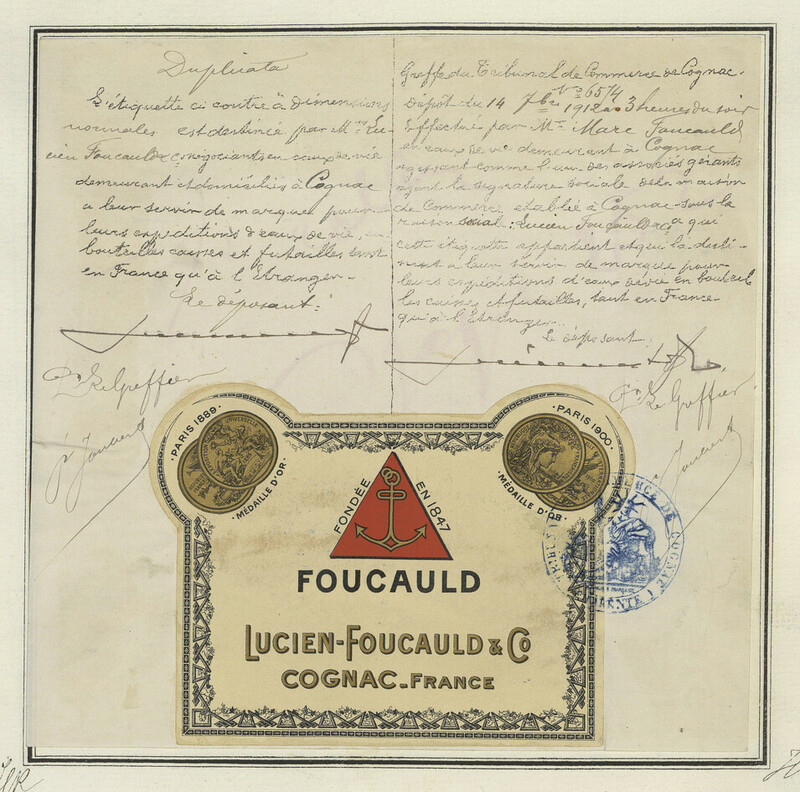 Duplicata
L'étiquette ci contre à dimensions
normales est destinée par Mrs Lu-
cien Foucauld & Co négociants en eaux de vie
demeurant et domiciliés à Cognac
à leur servir de marque pour
leurs expéditions d'eaux de vie, en
bouteilles caisses et futailles tant
en France qu'à l'Etranger.-
Le déposant:
Pr Le Greffier
Greffe du Tribunal de Commerce de Cognac.
No 6574
Dépôt du 14 7bre 1912 à 3 heures du soir
Effectué par Mr Marc Foucauld
en eaux de vie demeurant à Cognac
agissant comme l'un des associés gérants
ayant la signature sociale de la maison
de Commerce établie à Cognac sous la
raison social: Lucien Foucauld & Co à qui
cette étiquette appartient et qui la desti-
nent à leur servir de marque pour
leurs expéditions d'eaux de vie en bouteil
les caisses et futailles, tant en France
qu'à l'Etranger.
Le déposant
Pr Le Greffier
PARIS 1889.
MÉDAILLE D'OR
PARIS 1900.
MÉDAILLE D'OR
FONDÉE EN 1847
FOUCAULD
LUCIEN-FOUCAULD & Co
COGNAC-FRANCE